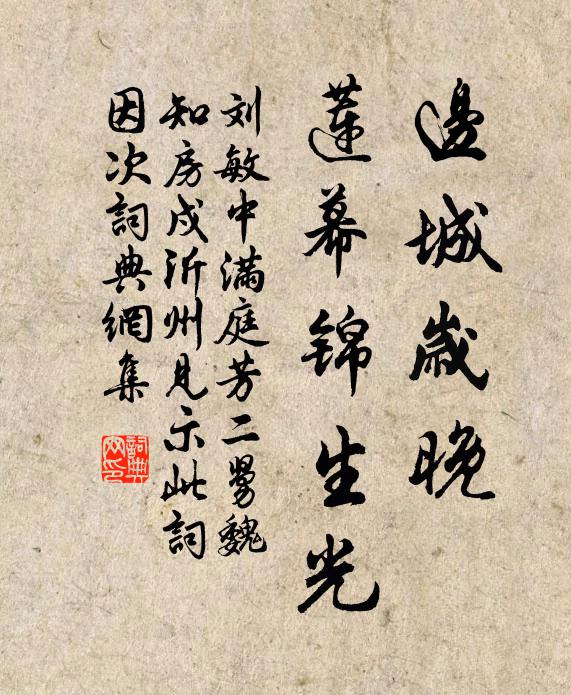 邊城歲晚
蓮幕錦生光
刘敏中满庭芳二舅魏
知房戍沂州見示此詞
因次詞典網集
詞典
网印